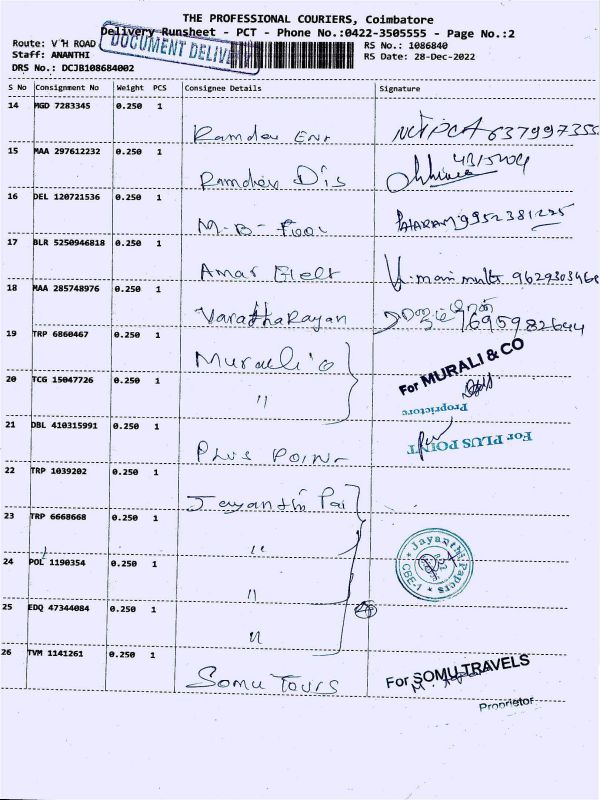 THE PROFESSIONAL COURIERS, Coimbatore
Delivery Runsheet - PCT - Phone No.:0422-3505555 - Page No.:2
Route: V H ROAD
DOCUMENT DELIV
RS No.: 1086840
Staff: ANANTHI
RS Date: 28-Dec-2022
DRS No.: DCJB108684002
S No Consignment No Weight PCS Consignee Details Signature
14 MGD 7283345 0.250 1
Ramdev Enr 637997355
15 MAA 297612232 0.250 1
Ramdev Dis
16 DEL 120721536 0.250 1
M-B- 9952381225
17 BLR 5250946818 0.250 1
Amar 9629303468
18 MAA 285748976 0.250 1
Varatharayan 7695982644
19 TRP 6860467 0.250 1
Murali
For MURALI & CO
20 TCG 15047726 0.250 1
"
Proprietore
21 DBL 410315991 0.250 1
Plus Poinr
For PLUS POINT
22 TRP 1039202 0.250 1
Jayanthi Pai
23 TRP 6668668 0.250 1
"
Jayanthi Papers
CBE-1
24 POL 1190354 0.250 1
"
25 EDQ 47344084 0.250 1
"
26 TVM 1141261 0.250 1
Somu Tours
For SOMU TRAVELS
Proprietor